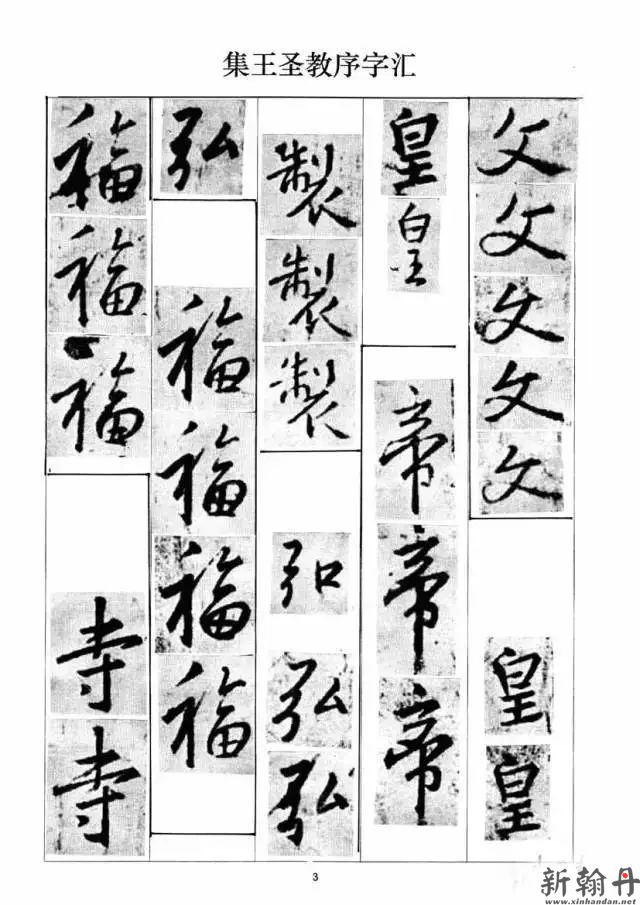 集王圣教序字汇
文文文文文皇皇
皇皇帝帝帝
製製製弘弘弘
弘福福福福
福福福寺寺
3
新翰丹
www.xinhandan.net